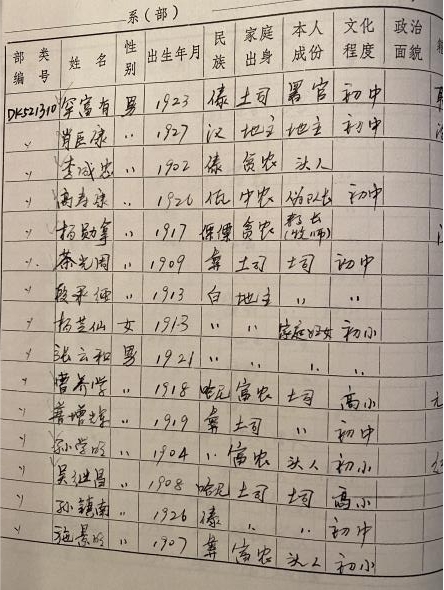 系（部）
部 类 编 号 姓 名 性别 出生年月 民族 家庭出身 本人成份 文化程度 政治面貌
DK521310 罕富有 男 1923 傣 土司 署官 初中
〃 肖臣康 〃 1927 汉 地主 地主 初中
〃 李成忠 〃 1902 傣 贫农 头人
〃 高寿康 〃 1926 佤 中农 伪队长 初中
〃 杨勋拿 〃 1917 倮倮 贫农 (牧师)
〃 茶光周 〃 1909 彝 土司 土司 初中
〃 段承经 〃 1913 白 地主 〃 〃
〃 杨芝仙 女 1913 〃 〃 家庭妇女 初小
〃 张云和 男 1921 〃 〃 〃 〃
〃 曹养学 〃 1918 哈尼 富农 土司 高小
〃 普增辉 〃 1919 彝 土司 〃 初中
〃 孙学明 〃 1904 〃 富农 头人 初小
〃 吴继昌 〃 1908 哈尼 土司 土司 高小
〃 孙镇南 〃 1926 傣 〃 〃 初中
〃 施景明 〃 1907 彝 富农 头人 初小